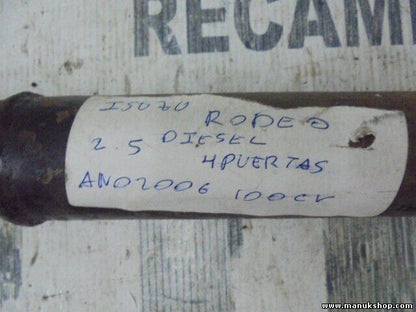 RECAM
ISUZU RODEO
2.5 DIESEL
4PUERTAS
ANO2006 100CV
www.manukshop.com